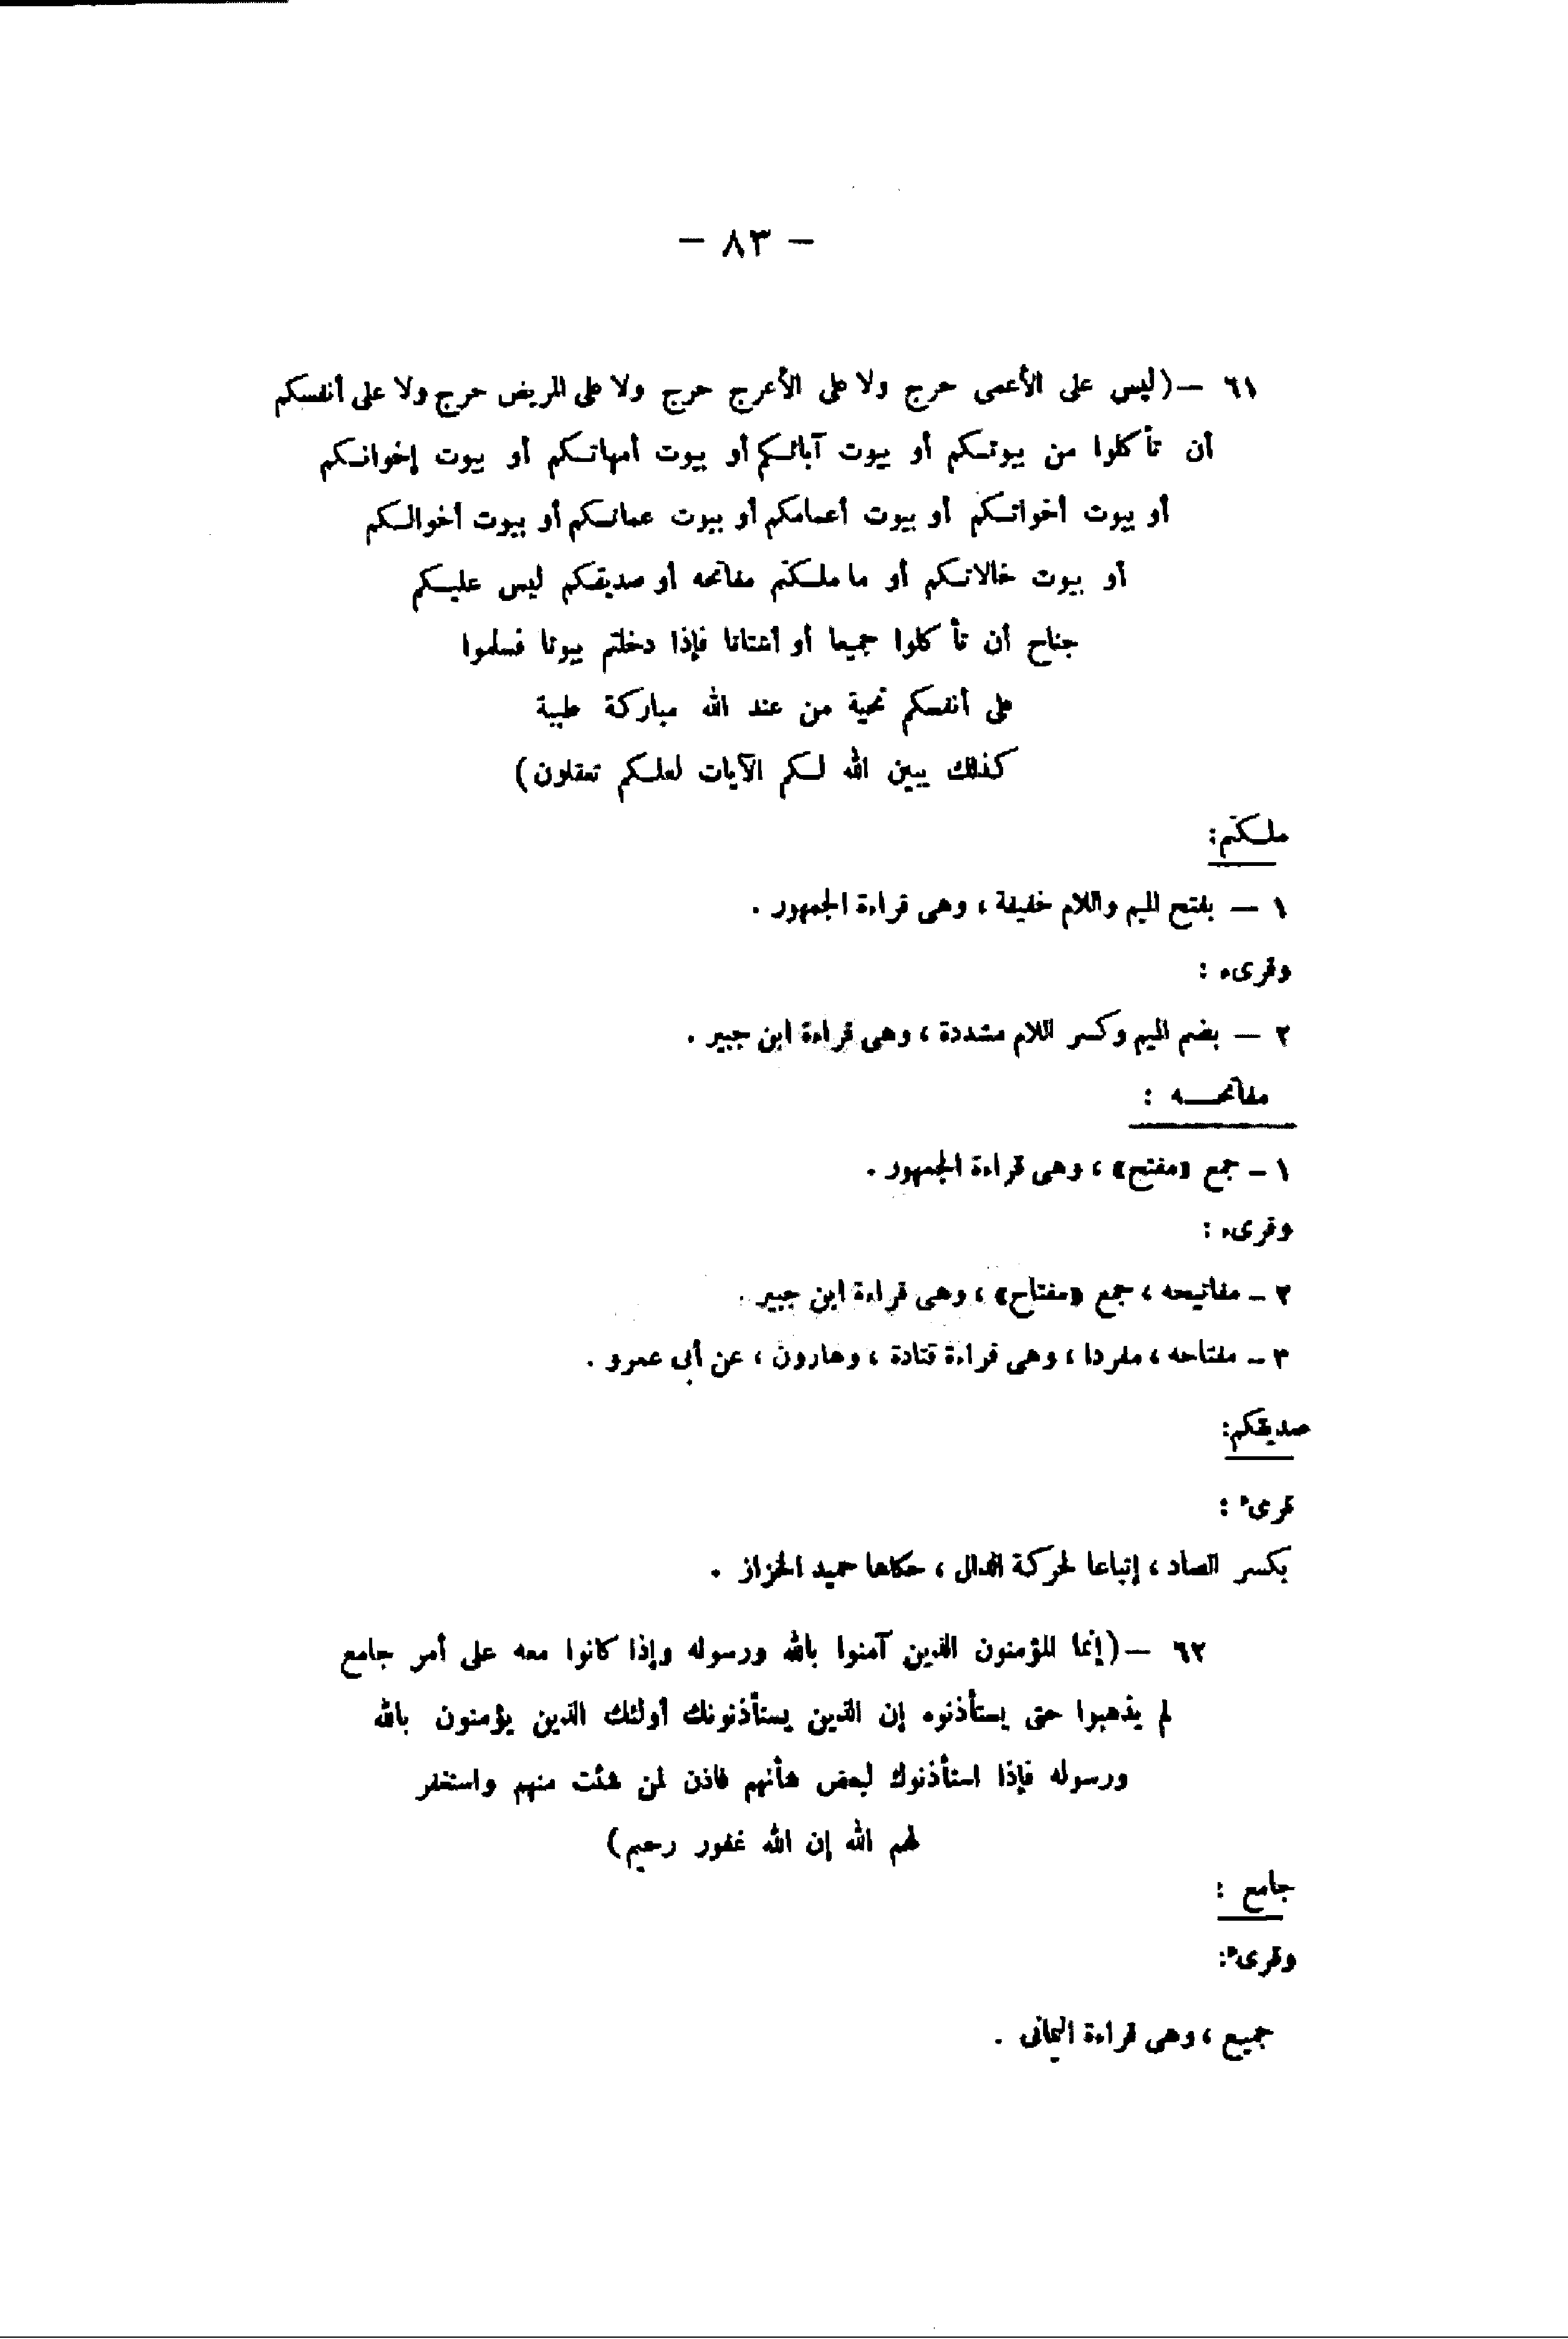 — ٨٣ —
٦١ — (ليس على الأعمى حرج ولا على الأعرج حرج ولا على المريض حرج ولا على أنفسكم
أن تأكلوا من بيوتكم أو بيوت آبائكم أو بيوت أمهاتكم أو بيوت إخوانكم
أو بيوت أخواتكم أو بيوت أعمامكم أو بيوت عماتكم أو بيوت أخوالكم
أو بيوت خالاتكم أو ما ملكتم مفاتحه أو صديقكم ليس عليكم
جناح أن تأكلوا جميعا أو أشتاتا فإذا دخلتم بيوتا فسلموا
على أنفسكم تحية من عند الله مباركة طيبة
كذلك يبين الله لكم الآيات لعلكم تعقلون)
ملكتم:
١ — بفتح الميم واللام خفيفة ، وهى قراءة الجمهور .
وقرىء :
٢ — بضم الميم وكسر اللام مشددة ، وهى قراءة ابن جبير .
مفاتحـــه :
١ – جمع «مفتح» ، وهى قراءة الجمهور .
وقرىء :
٢ – مفاتيحه ، جمع «مفتاح» ، وهى قراءة ابن جبير .
٣ – مفتاحه ، مفردا ، وهى قراءة قتادة ، وهارون ، عن أبى عمرو .
صديقكم:
قرىء :
بكسر الصاد ، إتباعا لحركة الدال ، حكاها حميد الخزاز .
٦٢ — (إنما المؤمنون الذين آمنوا بالله ورسوله وإذا كانوا معه على أمر جامع
لم يذهبوا حتى يستأذنوه إن الذين يستأذنونك أولئك الذين يؤمنون بالله
ورسوله فإذا استأذنوك لبعض شأنهم فاذن لمن شئت منهم واستغفر
لهم الله إن الله غفور رحيم)
جامع :
وقرىء:
جميع ، وهى قراءة اليمانى .